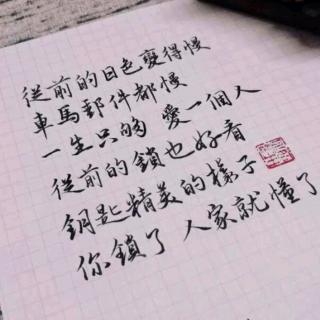 從前的日色變得慢
車馬郵件都慢
一生只夠 愛一個人
從前的鎖也好看
鑰匙精美的樣子
你鎖了 人家就懂了